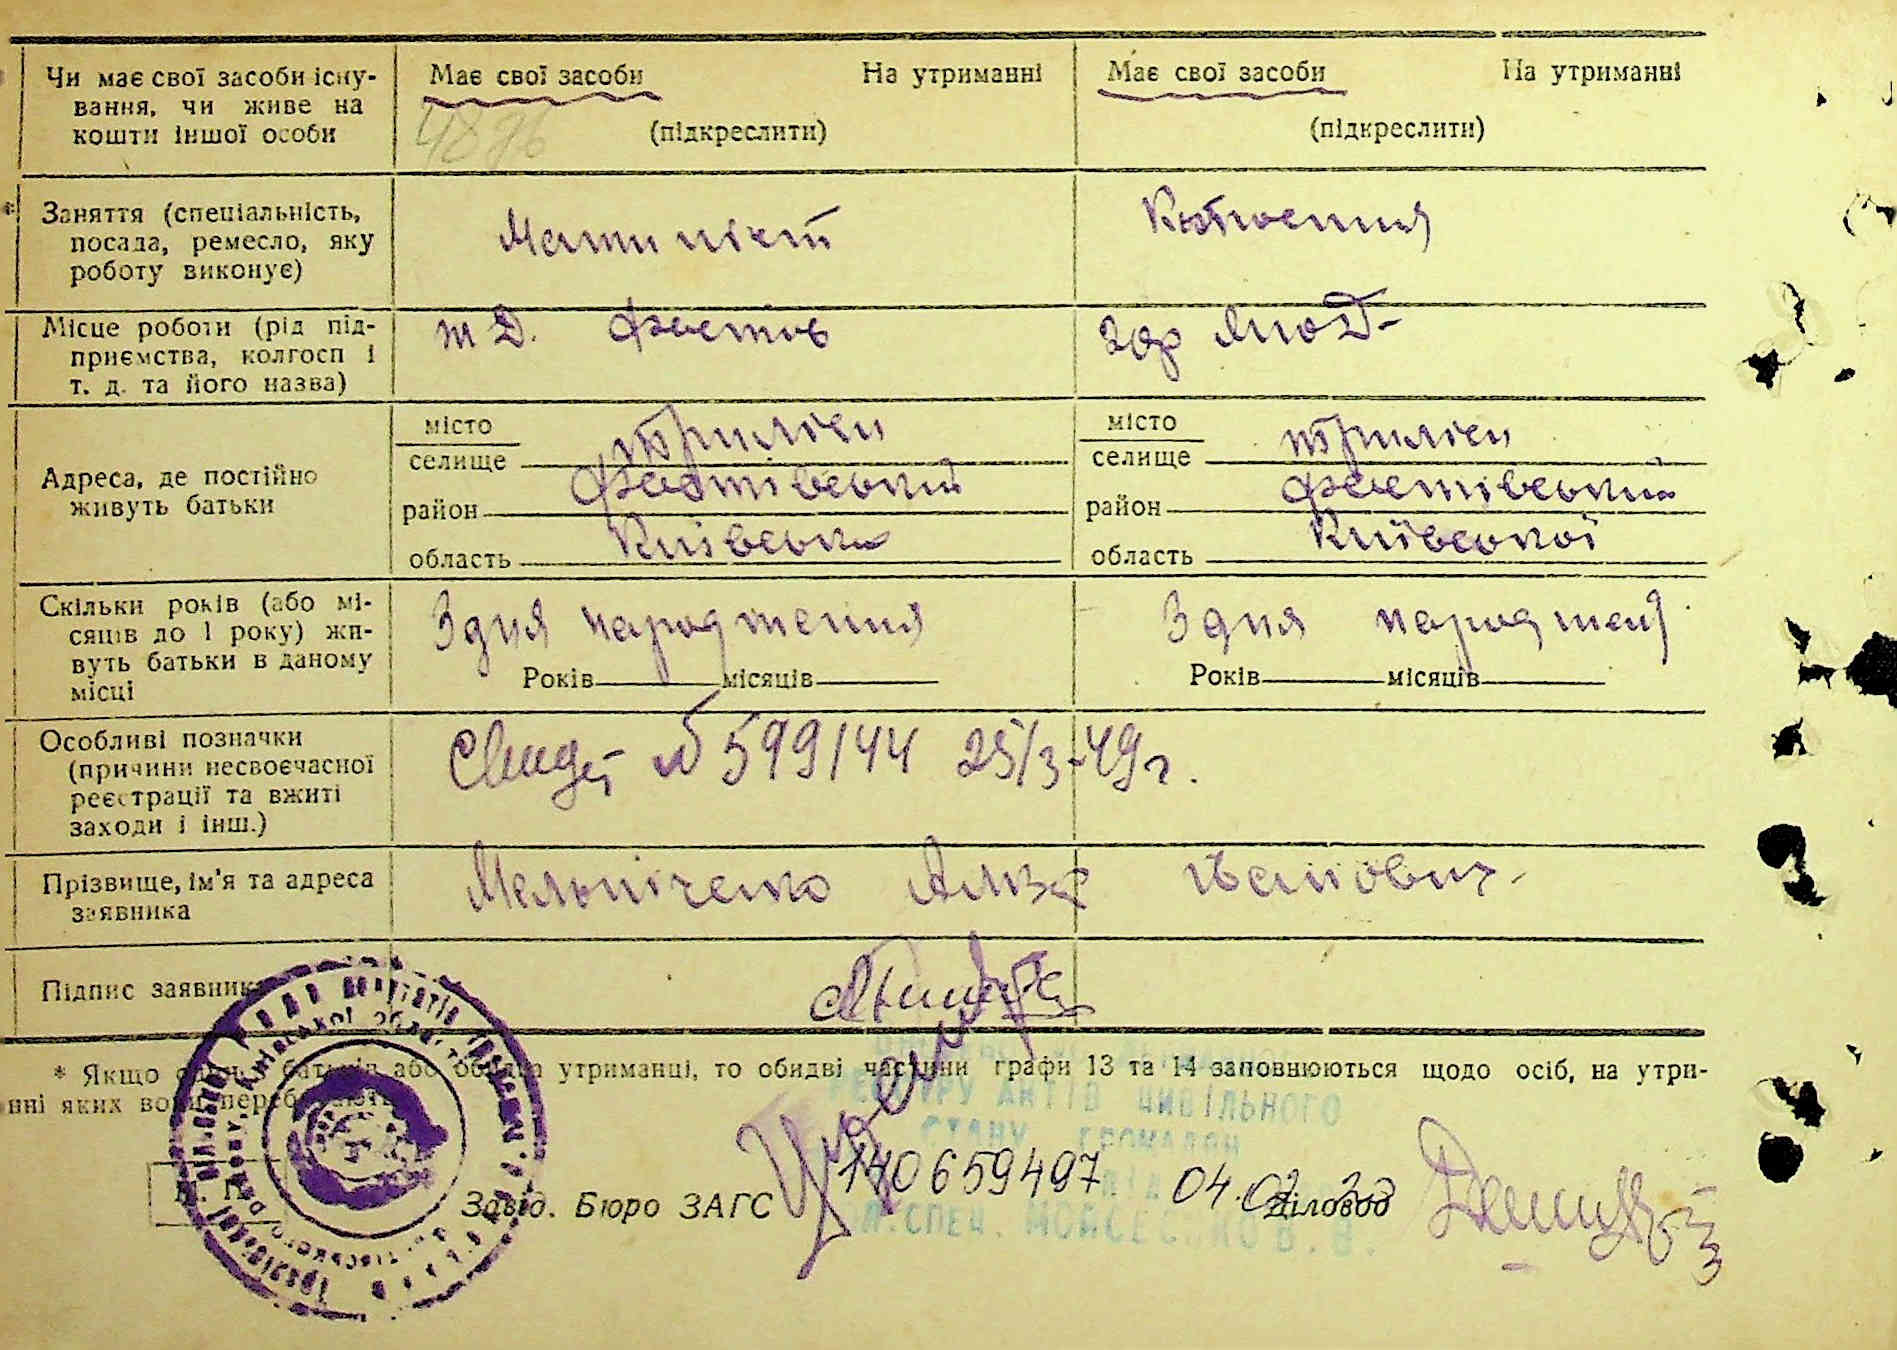 Чи має свої засоби існу-
вання, чи живе на
кошти іншої особи
Має свої засоби На утриманні
(підкреслити)
Має свої засоби На утриманні
(підкреслити)
* Заняття (спеціальність,
посада, ремесло, яку
роботу виконує)
Машиніст
Місце роботи (рід під-
приємства, колгосп і
т. д. та його назва)
ж Д. Фастів
Адреса, де постійно
живуть батьки
місто
селище Триліси
район Фастівський
область Київська
місто
селище Триліси
район Фастівський
область Київської
Скільки років (або мі-
сяців до 1 року) жи-
вуть батьки в даному
місці
З дня народження
Років місяців
З дня народжен
Років місяців
Особливі позначки
(причини несвоєчасної
реєстрації та вжиті
заходи і інш.)
Свидет № 599144 25/3-49 г.
Прізвище, ім'я та адреса
заявника
Мельніченко Иванович
Підпис заявника
* Якщо один з батьків або обидва утриманці, то обидві частини графи 13 та 14 заповнюються щодо осіб, на утри-
нні яких вони перебувають
РЕЄСТРУ АКТІВ ЦИВІЛЬНОГО
СТАНУ ГРОМАДЯН
140659497 04.02.
М. П. Завід. Бюро ЗАГС Діловод
СПЕЦ. МОЙСЕЄНКО В. В.